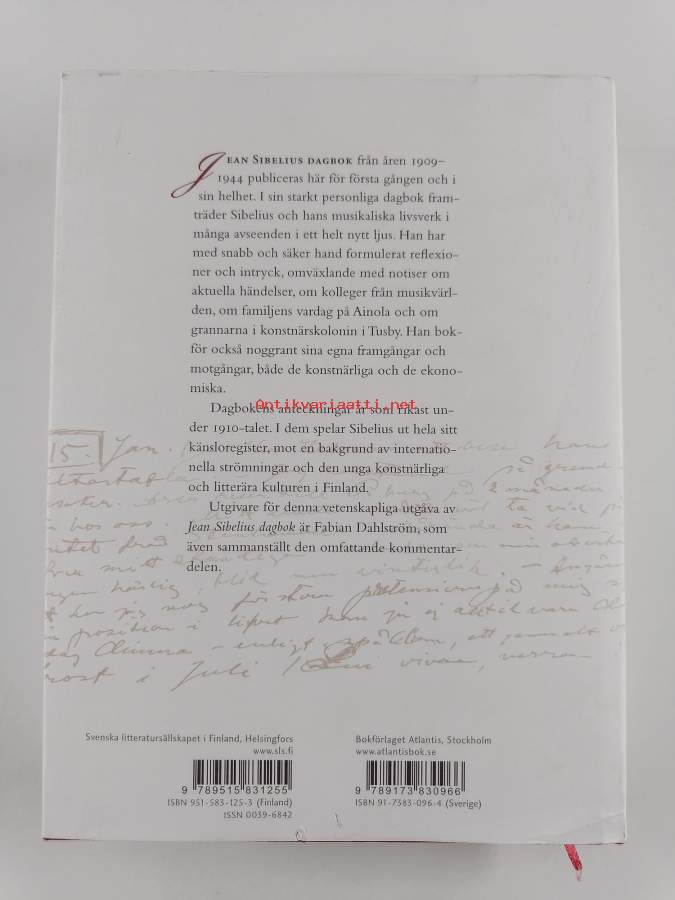 JEAN SIBELIUS DAGBOK från åren 1909–
1944 publiceras här för första gången och i
sin helhet. I sin starkt personliga dagbok fram-
träder Sibelius och hans musikaliska livsverk i
många avseenden i ett helt nytt ljus. Han har
med snabb och säker hand formulerat reflexio-
ner och intryck, omväxlande med notiser om
aktuella händelser, om kolleger från musikvärl-
den, om familjens vardag på Ainola och om
grannarna i konstnärskolonin i Tusby. Han bok-
för också noggrant sina egna framgångar och
motgångar, både de konstnärliga och de ekono-
miska.
Antikvariaatti.net
Dagbokens anteckningar är som rikast un-
der 1910-talet. I dem spelar Sibelius ut hela sitt
känsloregister, mot en bakgrund av internatio-
nella strömningar och den unga konstnärliga
och litterära kulturen i Finland.
Utgivare för denna vetenskapliga utgåva av
Jean Sibelius dagbok är Fabian Dahlström, som
även sammanställt den omfattande kommentar-
delen.
15. Jan.
på grund
2 månader
ta vid
hos oss.
vinterlik.
pretensioner på mig
position i lifvet kan ju ej
enligt spådom, ett gammalt
i Juli
Svenska litteratursällskapet i Finland, Helsingfors
www.sls.fi
9 789515 831255
ISBN 951-583-125-3 (Finland)
ISSN 0039-6842
Bokförlaget Atlantis, Stockholm
www.atlantisbok.se
9 789173 830966
ISBN 91-7383-096-4 (Sverige)